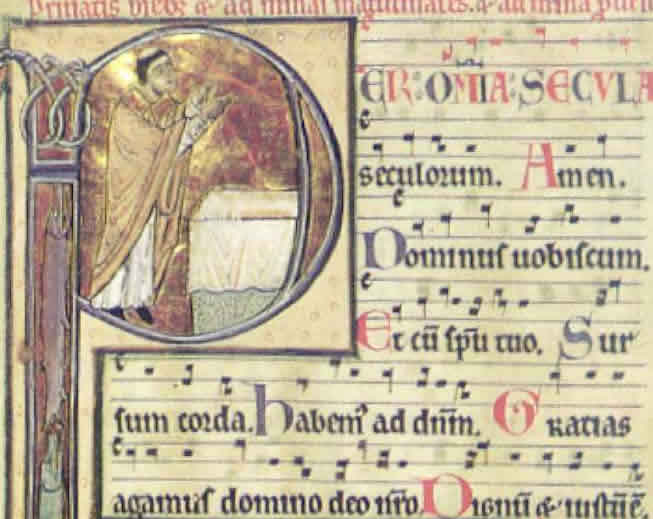 P
ER: OMĪA: SECVLA
seculorum. Amen.
Dominus uobiscum.
Et cū spū tuo. Sur
sum corda. habem' ad dn̄m. Gratias
agamus domino deo nr̄o. Dignū & iustū ē.